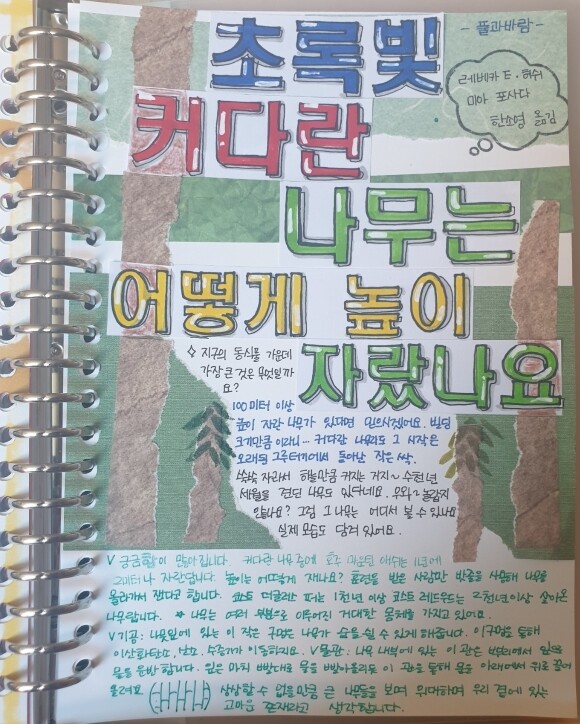 초록빛
- 풀과바람 -
레베카 E. 허쉬
미아 포사다
한소영 옮김
커다란
나무는
어떻게 높이
자랐나요
◇ 지구의 동식물 가운데
가장 큰 것은 무엇일까
요?
100미터 이상
높이 자란 나무가 있다면 믿으시겠어요. 빌딩
크기만큼 이라니... 커다란 나무리도 그 시작은
오래된 그루터기에서 돋아난 작은 싹.
쑥쑥 자라서 하늘만큼 커지는 거지~ 수천년
세월을 견딘 나무도 있다네요. 우와~ 놀랍지
않나요? 그럼 그 나무는 어디서 볼 수 있나요
실제 모습도 담겨 있어요.
V 궁금함이 많아집니다. 커다란 나무 중에 호주 마운틴 애쉬는 1년에
2미터나 자란답니다. 높이는 어떻게 재나요? 훈련을 받은 사람만 밧줄을 사용해 나무를
올라가서 잰다고 합니다. 코스트 더글러스 퍼는 1천년 이상 코스트 레드우드는 2천년이상 살아온
나무랍니다. * 나무는 여러 부분으로 이루어진 거대한 몸체를 가지고 있어요.
V 기공: 나뭇잎에 있는 이 작은 구멍은 나무가 숨을 쉴 수 있게 해줍니다. 이 구멍을 통해
이산화탄소, 산소, 수증기가 이동하지요. V 물관: 나무 내부에 있는 이 관은 뿌리에서 잎으로
물을 운반합니다. 잎은 마치 빨대로 물을 빨아올리듯 이 관을 통해 물을 아래에서 위로 끌어
올려요. 상상할 수 없을만큼 큰 나무들을 보며 위대하며 우리 곁에 있는
고마운 존재라고 생각합니다.